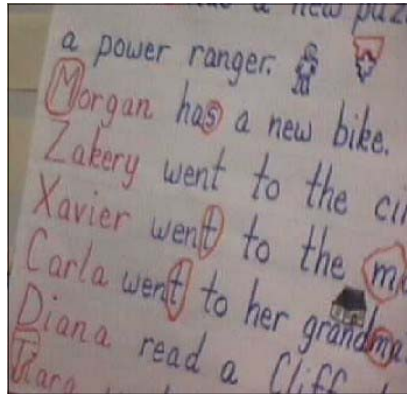 a new puz
a power ranger.
Morgan has a new bike.
Zakery went to the ci
Xavier went to the m
Carla went to her grandma
Diana read a Cliff
Kara